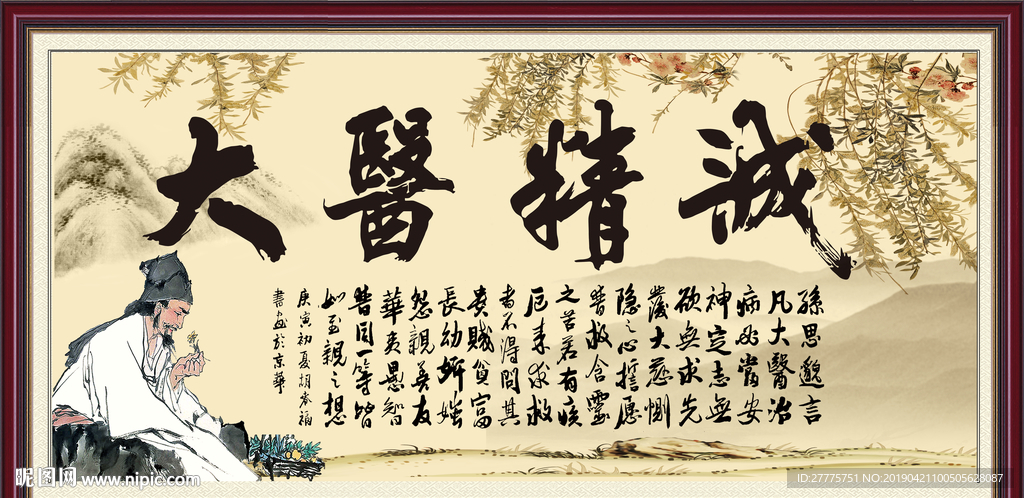 大醫精誠
孫思邈言
凡大醫治
病必當安
神定志無
欲無求先
發大慈惻
隐之心誓愿
普救含靈
之苦若有疾
厄来求救
者不得問其
貴賤貧富
長幼妍媸
怨親善友
華夷愚智
普同一等皆
如至親之想
庚寅初夏胡秀福
書画於京華
昵图网 www.nipic.com
ID:27775751 NO:20190421100505628087